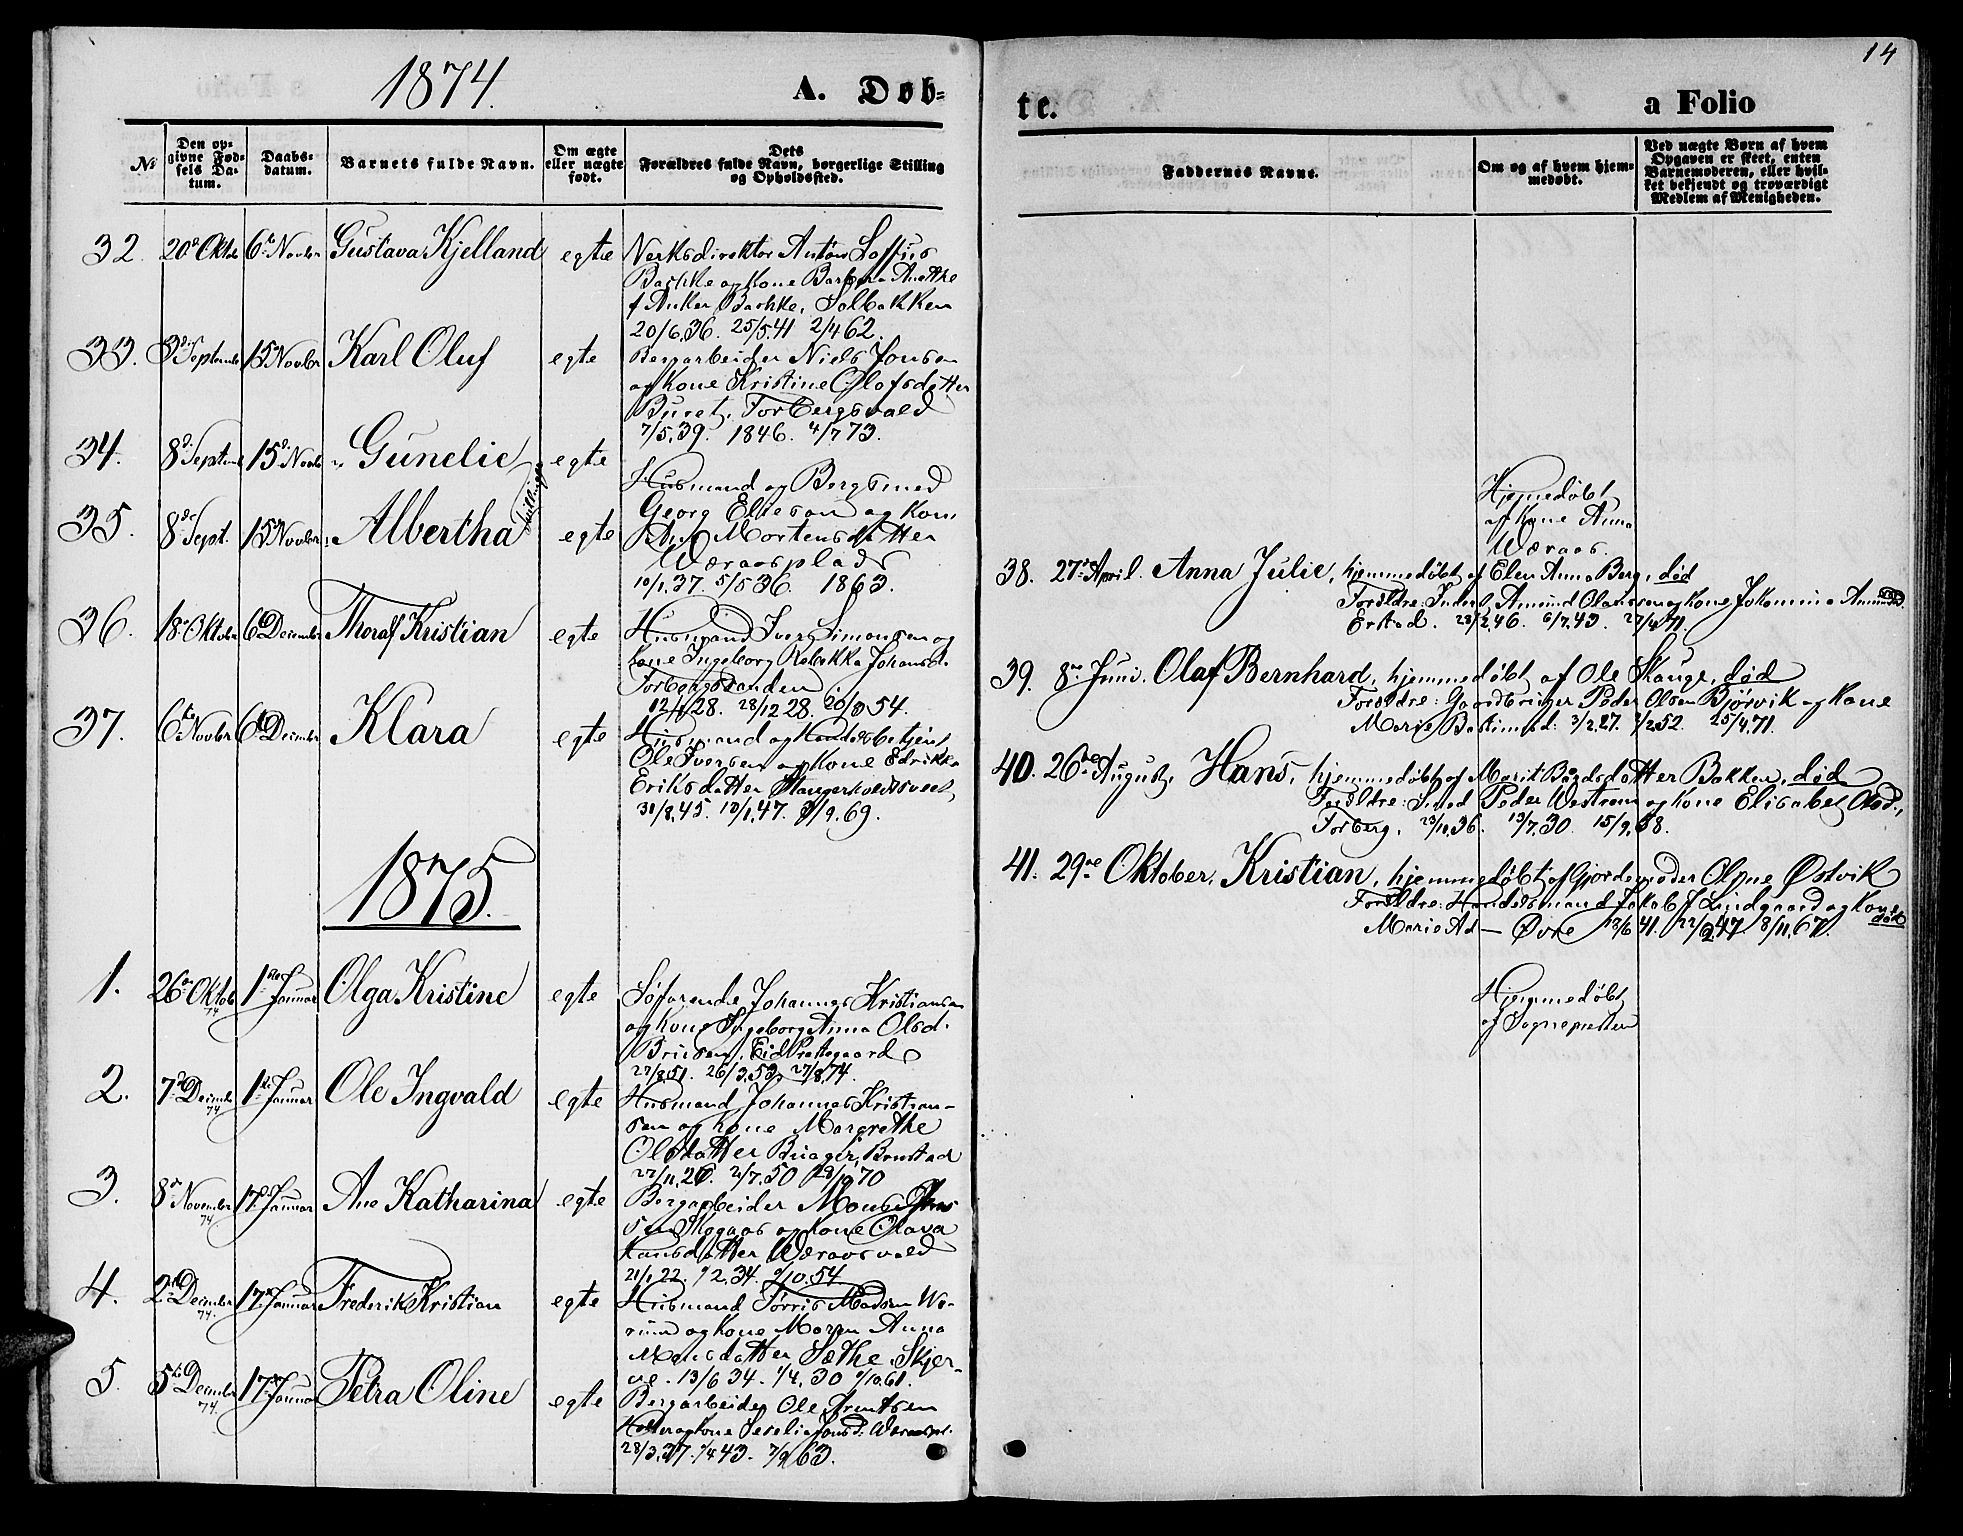 1874.
A. Døb-
№
Den op-
givne Fød-
sels Da-
tum.
Daabs-
datum.
Barnets fulde Navn.
Om ægte
eller uægte
født.
Dets
Forældres fulde Navn, borgerlige Stilling
og Opholdssted.
32. 20de Oktbr 6te Novbr Gustava Kjelland egte Verksdirektør Anton Soffus
Bachke og Kone Barbara Anethe
f Anker Bachke, Solbakken
20/6.36. 25/5.41 2/4 62.
33. 3de Septembr 15 Novbr Karl Oluf egte Bergarbeider Niels Jonsen
og Kone Kristine Olofsdatter
Buret, Forbergsvald
7/5.39. 1846. 4/7 73.
34. 8de Septembr 15de Novbr Gunelie egte
Husmand og Bergsmed
35. 8de Sept. 15de Novbr Albertha Tvillinger egte
Georg Ellesen og Kone
Mortensdatter
Væraasplads
10/1.37. 5/5 36. 1863.
36. 18de Oktober 6te Decembr Thoralf Kristian egte Husmand Iver Simonsen og
Kone Ingeborg Rebekka Johansd.
Forbergsstanden
12/1 28. 28/12 28. 20/8 54.
37. 6te Novbr 6te Decembr Klara egte Husmand og Handelsbetjent
Ole Iversen og Kone Edrikka
Eriksdatter
31/8.45. 10/1.47. 9/9.69.
1875.
1. 26de Oktob 74 1ste Januar Olga Kristine egte Søfarende Johannes Kristiansen
og Kone Ingeborg Anna Olsd.
Eid Prestegaard
27/8.51. 26/3.53. 27/8.74.
2. 7de Decembr 74 1ste Januar Ole Ingvald egte Husmand Johannes Kristian-
sen og Kone Margrethe
Olsdatter
27/11.26. 2/7.50 28/10 70
3. 8de November 74 17de Januar Ane Katharina egte Bergarbeider Mons
sen og Kone Olava
Hansdatter Væraasvald
21/1.22. 1/2.34. 9/10.54.
4. 2den Decembr 74. 17de Januar Frederik Kristian egte Husmand Tørris Madsen We-
rum og Kone Maren Anna
Monsdatter Sæthe, Skjer-
ne. 13/6 34. 1/4.30 1/10.61.
5. 5te Decembr 74. 17de Januar Petra Oline egte Bergarbeider Ole Arntsen
og Kone Serelie Jonsd. Væraaspl.
28/3.37. 1/4 43. 7/9 63.
14
te.
a Folio
Faddernes Navne.
Om og af hvem hjem-
medøbt.
Ved uægte Børn af hvem
Opgaven er skeet, enten
Barnemoderen, eller hvil-
ket bekjendt og troværdigt
Medlem af Menigheden.
Hjemmedøbt
af Kone Anna
Væraas.
38. 27de April. Anna Julie, hjemmedøbt af Elen Anna Berg, død
Forældre: Inderst Amund Olaussen og Kone Johannna Amundsd.
Erstad. 28/2.46. 6/7.43. 27/4 71.
39. 8de Juni. Olaf Bernhard, hjemmedøbt af Ole Skauge, død
Forældre: Gaardbruger Peder Olsen Bjørvik og Kone
Marie 3/2.27. 2/2 52. 25/4.71.
40. 26de August, Hans, hjemmedøbt af Marit Baardsdatter Bakken, død
Forældre: Smed Peder Westrum og Kone Elisabet Olsd.,
Forberg. 23/10.36. 13/7.30. 15/9.58.
41. 29de Oktober, Kristian, hjemmedøbt af Gjordemoder Oline Østvik
Forældre: Handelsmand Jakob J Lindgaard og Kone
Marie Ad— Øvre 13/6 41. 22/2 47. 8/11.67. død
Hjemmedøbt
af Sognepresten